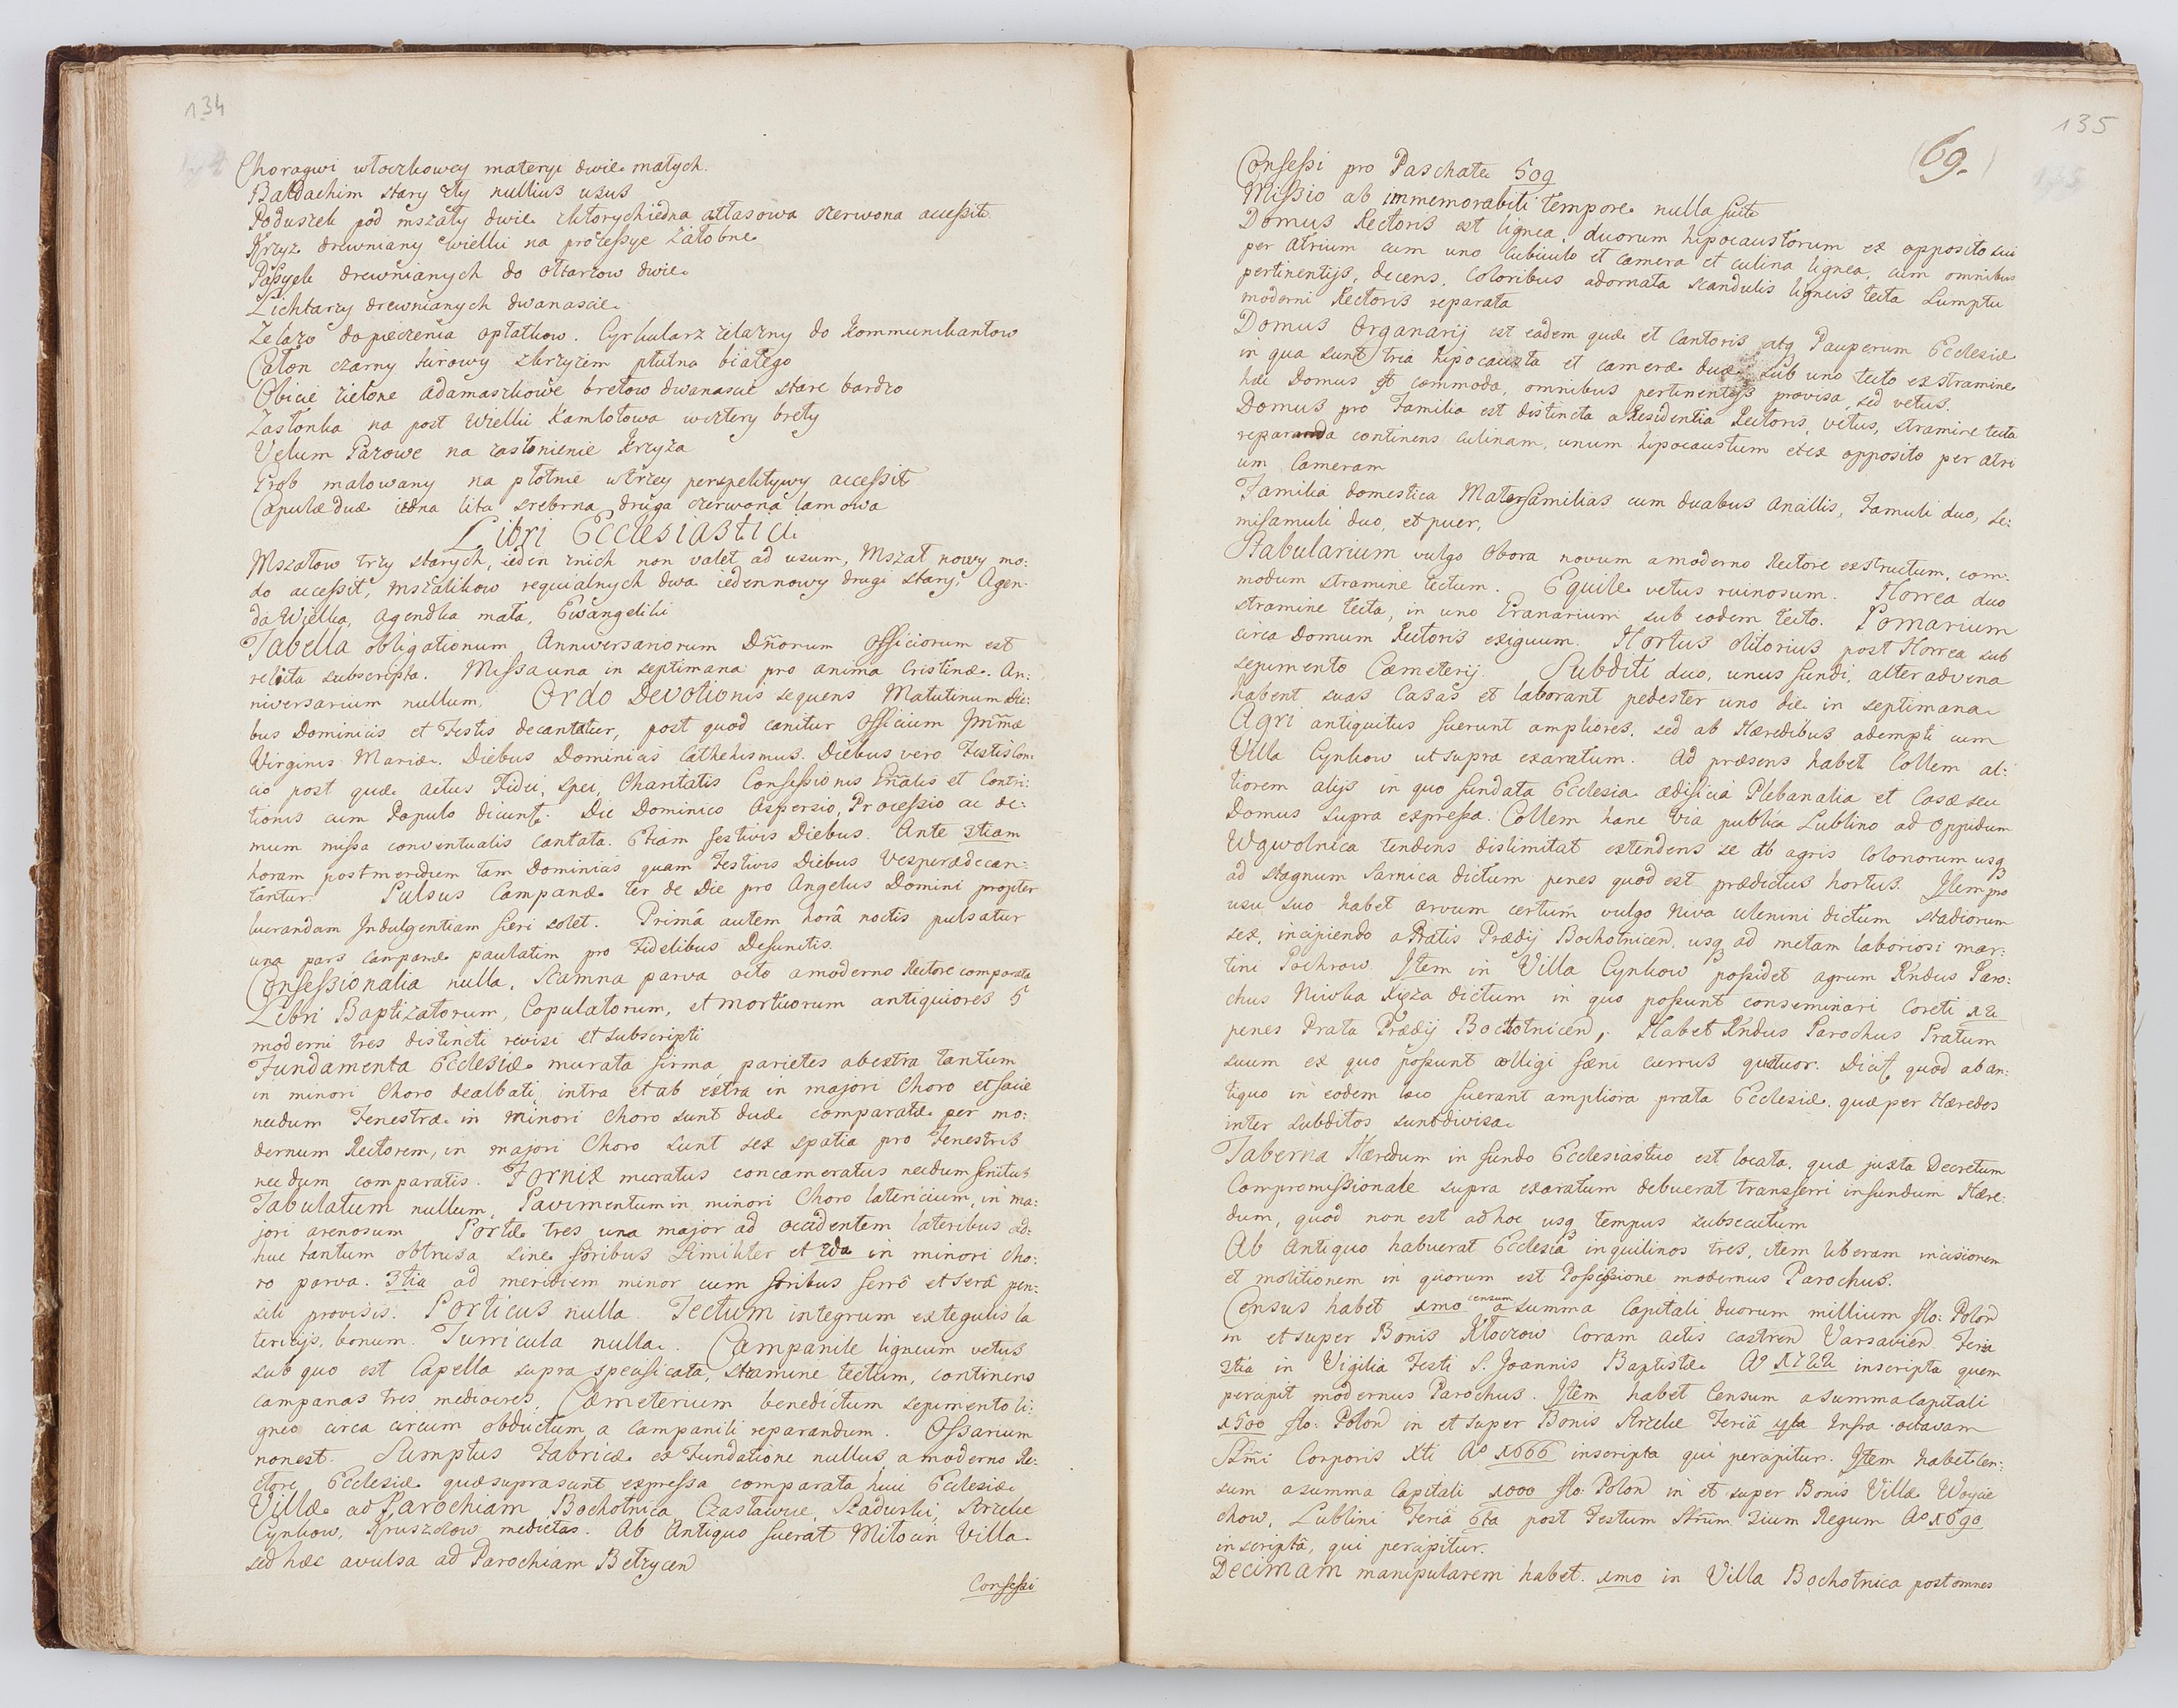 134
Choragwi włoczkowey materyi dwie małych.
Baldachim stary zły nullius usus
Poduszek pod mszały dwie z ktorych iedna atłasowa czerwona accessit
Krzyż drewniany wielki na processye żałobne
Pasyek drewnianych do ołtarzow dwie
Lichtarzy drewnianych dwanascie
Zelazo do pieczenia opłatkow. Cyrkularz żelazny do kommunikantow
Całon czarny kirowy zkrzyżem płutna białego
Obicie zielone adamaszkowe bretow dwanascie stare bardzo
Zasłonka na post Wielki Kamlotowa wcztery brety
Velum Pazowe na zasłonienie Krzyża
Grob malowany na płotnie wtrzey perspektywy accessit
Capulæ duæ iedna lita srebrna druga czerwona lamowa
Libri Ecclesiastici
Mszałow trzy starych, ieden znich non valet ad usum, Mszał nowy mo:
do accessit, mszalikow requialnych dwa ieden nowy drugi stary, Agen:
da Wielka, agendka mała, Ewangeliki
Tabella obligationum Anniversariorum Dn̄orum Officiorum est
relicta subscripta. Missa una in septimana pro anima Cristinæ. An:
niversarium nullum. Ordo Devotionis sequens Matutinum die:
bus Dominicis et Festis decantatur, post quod canitur officium Im̄mæ
Virginis Mariæ. Diebus Dominicis Cathekismus. Diebus vero Festis Con:
cio post quæ actus Fidei, spei, Charitatis Confessionis Gn̄alis et Contri:
tionis cum Populo dicunt. Die Dominico Aspersio, Processio ac de:
mum missa conventualis Cantata. Etiam festivis Diebus. Ante 3tiam
horam postmeridiem tam Dominicis quam Festivis Diebus Vesperæ decan:
tantur Pulsus Campanæ ter de Die pro Angelus Domini propter
lucrandam Indulgentiam fieri solet. Primâ autem horâ noctis pulsatur
una pars campanæ paulatim pro Fidelibus Defunctis.
Confessionalia nulla, Scamna parva octo a moderno Rectore comparata
Libri Baptizatorum, Copulatorum, et mortuorum antiquiores 5
moderni tres distincti revisi et subscripti
Fundamenta Ecclesiæ murata firma parietes ab extra tantum
in minori Choro dealbati, intra et ab extra in majori Choro et facie
necdum Fenestræ in minori Choro sunt duæ comparatæ per mo:
dernum Rectorem, in majori Choro sunt sex spatia pro Fenestris
necdum comparatis. Fornix muratus concameratus necdum finitus
Tabulatum nullum, Pavimentum in minori Choro latericium, in ma:
jori arenosum Portæ tres una major ad occidentem lateribus ad:
huc tantum obtrusa sine foribus Similiter et 2da in minori cho:
ro parva. 3tia ad meridiem minor cum foribus ferrô et serâ pen:
sili provisis. Porticus nulla. Tectum integrum ex tegulis la
tericijs, bonum. Turricula nulla. Campanile ligneum vetus
sub quo est Capella supra specificata, stramine tectum, continens
campanas tres mediocres. Cæmeterium benedictum sepimento li:
gneo circa circum obductum a campanili reparandum. Ossarium
nonest. Sumptus Fabricæ ex Fundatione nullus, a moderno Re:
ctore Ecclesiæ quæ supra sunt expressa comparata huic Ecclesiæ
Villæ ad Parochiam Bochotnica Czasławice, Sadurki, Strzelce
Cynkow, Kruszkow medietas. Ab Antiquo fuerat Miłocin Villa
sed hæc avulsa ad Parochiam Betzycen
Confessi
135
(69.)
Confessi pro Paschate 509
Missio ab immemorabili tempore nulla fuit
Domus Rectoris est lignea, duorum hipocaustorum ex opposito sui
per atrium cum uno cubiculo et camera et culina lignea, cum omnibus
pertinentijs, decens, Coloribus adornata scandulis ligneis tecta Sumptu
moderni Rectoris reparata
Domus Organarij est eadem quæ et Cantoris, atq Pauperum Ecclesiæ
in qua sunt tria hipocausta et cameræ duæ sub uno tecto ex stramine
hæc Domus est commoda, omnibus pertinentijs provisa, sed vetus.
Domus pro Familia est distincta a Residentia Rectoris, vetus, stramine tecta
reparanda continens Culinam, unum hipocaustum et ex opposito per atri
um Cameram
Familia domestica Materfamilias cum duabus Ancillis, Famuli duo, se:
mifamuli duo, et puer,
Stabularium vulgo Obora novum a moderno Rectore exstructum, com:
modum stramine tectum. Equile vetus ruinosum. Horrea duo
stramine tecta, in uno Granarium sub eodem tecto. Pomarium
circa Domum Rectoris exiguum. Hortus olitorius post Horrea sub
sepimento Cæmeterij. Subditi duo, unus fundi, alter advena
habent suas Casas et laborant pedester uno die in septimana
Agri antiquitus fuerunt ampliores, sed ab Hæredibus adempti cum
Villa Cynkow ut supra exaratum. Ad præsens habet Collem al:
tiorem alijs in quo fundata Ecclesia ædificia Plebanalia et Casæ seu
Domus supra expressa. Collem hanc via publica Lublino ad Oppidum
Wąwolnica tendens dislimitat extendens se ab agris Colonorum usq
ad stagnum Sarnica dictum penes quod est prædictus hortus. Item pro
usu suo habet arvum certum vulgo Niva Ulenini dictum stadiorum
sex, incipiendo a Pratis Prædij Bochotnicen. usq ad metam laboriosi Mar:
tini Pochrow. Item in Villa Cynkow possidet agrum Rndus Paro:
chus Niwka Xięża dictum in quo possunt conseminari Coreti 12
penes Prata Prædij Bochotnicen, Habet Rndus Parochus Pratum
suum ex quo possunt colligi fæni currus quatuor. Dicit quod ab an:
tiquo in eodem loco fuerant ampliora prata Ecclesiæ, quæ per Hæredes
inter subditos sunt divisa
Taberna Hæredum in fundo Ecclesiastico est locata, quæ juxta Decretum
Compromissionale supra exaratum debuerat transferri in fundum Hære:
dum, quod non est ad hoc usq tempus subsecutum
Ab Antiquo habuerat Ecclesia inquilinos tres, item liberam incisionem
et molitionem in quorum est Possessione modernus Parochus.
Census habet 1mo censum a summa Capitali duorum millium flo: Polon
in et super Bonis Kłoczow Coram actis castren Varsavien Feria
3tia in Vigilia Festi S. Joannis Baptistæ Ao 1722 inscripta quem
percipit modernus Parochus. Item habet Censum a summa Capitali
1500 flo: Polon in et super Bonis Strzelce Feriâ 4ta Infra octavam
SSmi Corporis Xti Ao 1666 inscripta qui percipitur. Item habet Cen:
sum a summa Capitali 1000 flo: Polon in et super Bonis Villæ Woycie
chow, Lublini Feriâ 6ta post Festum SSrum 3ium Regum Ao 1690
inscriptâ, qui percipitur.
Decimam manipularem habet. 1mo in Villa Bochotnica post omnes